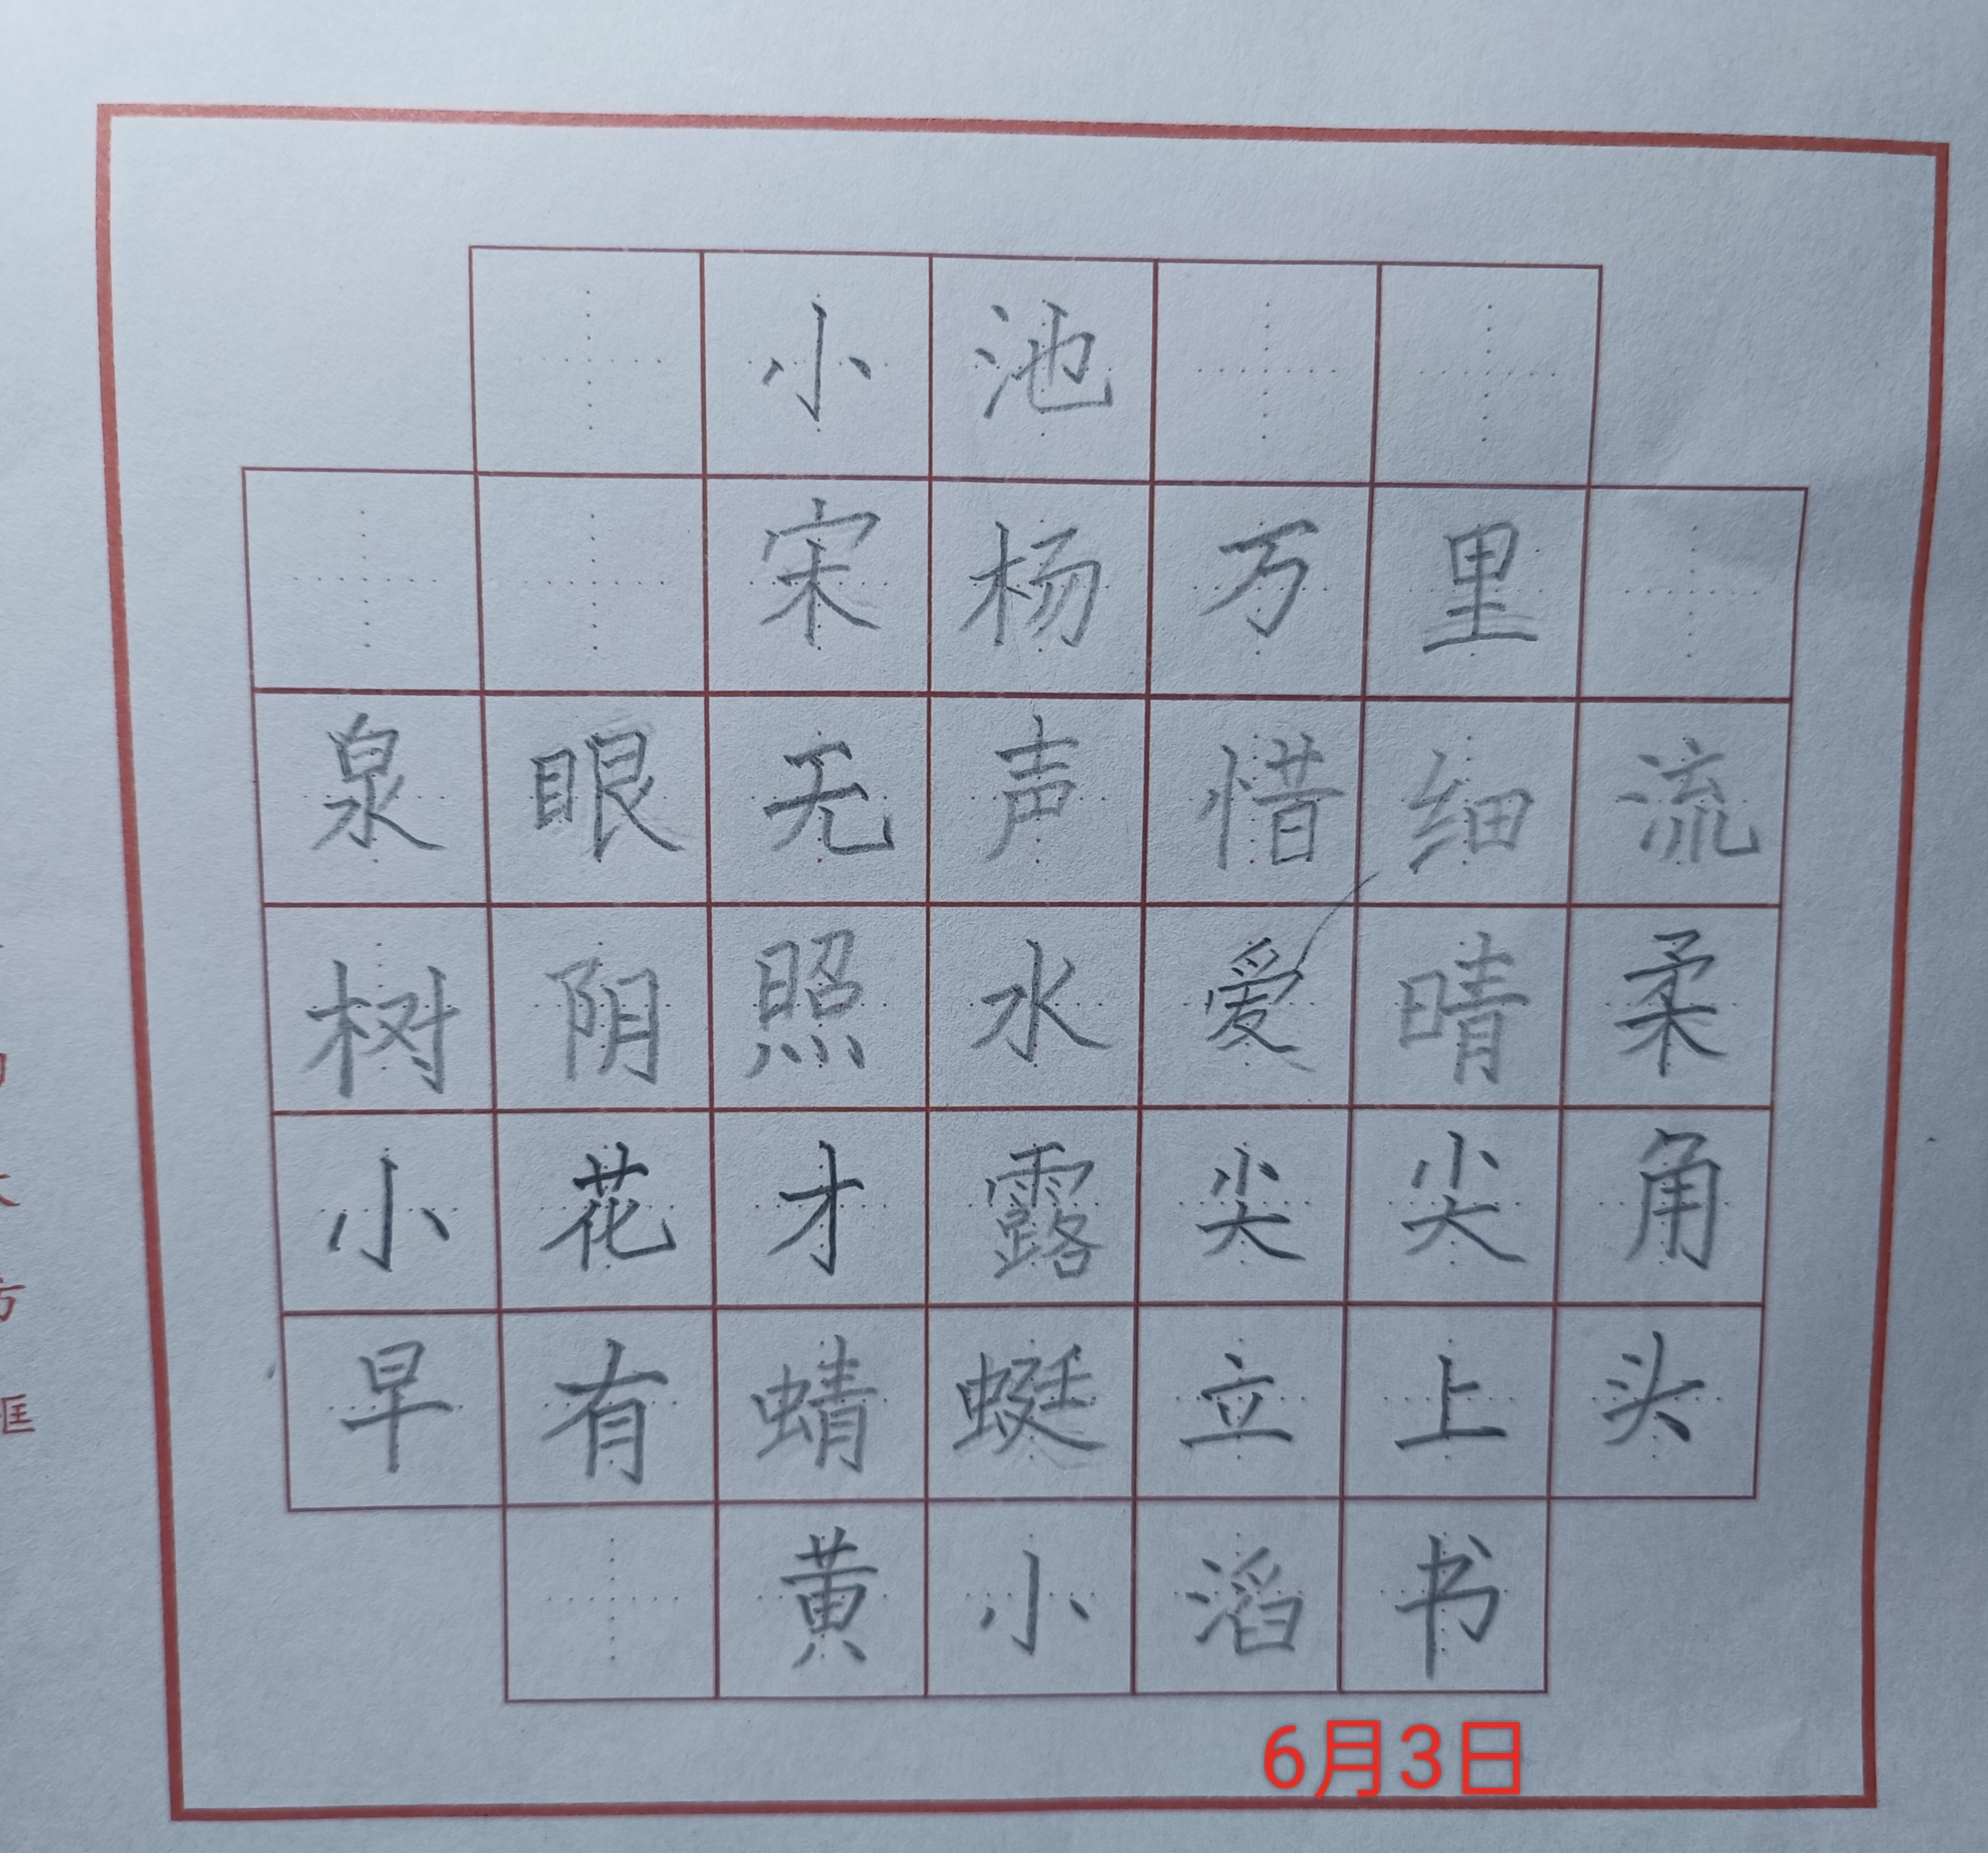 小池
宋杨万里
泉眼无声惜细流
树阴照水爱晴柔
小花才露尖尖角
早有蜻蜓立上头
黄小滔书
6月3日